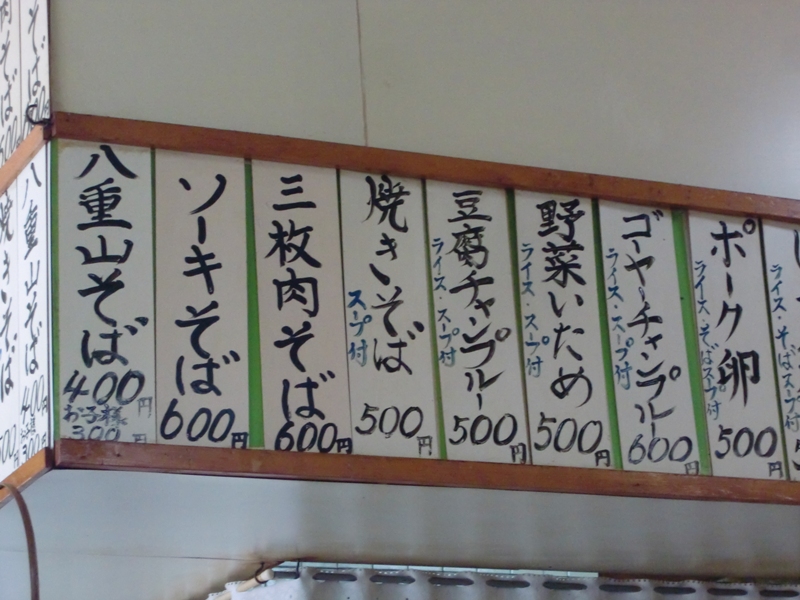 八重山そば
400円
お子様
300円
ソーキそば
600円
三枚肉そば
600円
焼きそば
スープ付
500円
豆腐チャンプルー
ライス・スープ付
500円
野菜いため
ライス・スープ付
500円
ゴーヤーチャンプルー
ライス・スープ付
600円
ポーク卵
ライス・そばスープ付
500円
ライス・そばスープ付
八重山そば
400円
300円
焼きそば